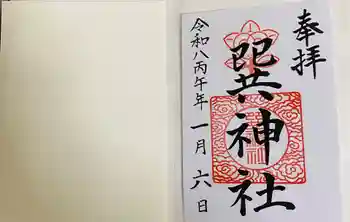 奉拝
訳共神社
令和八丙午年一月六日